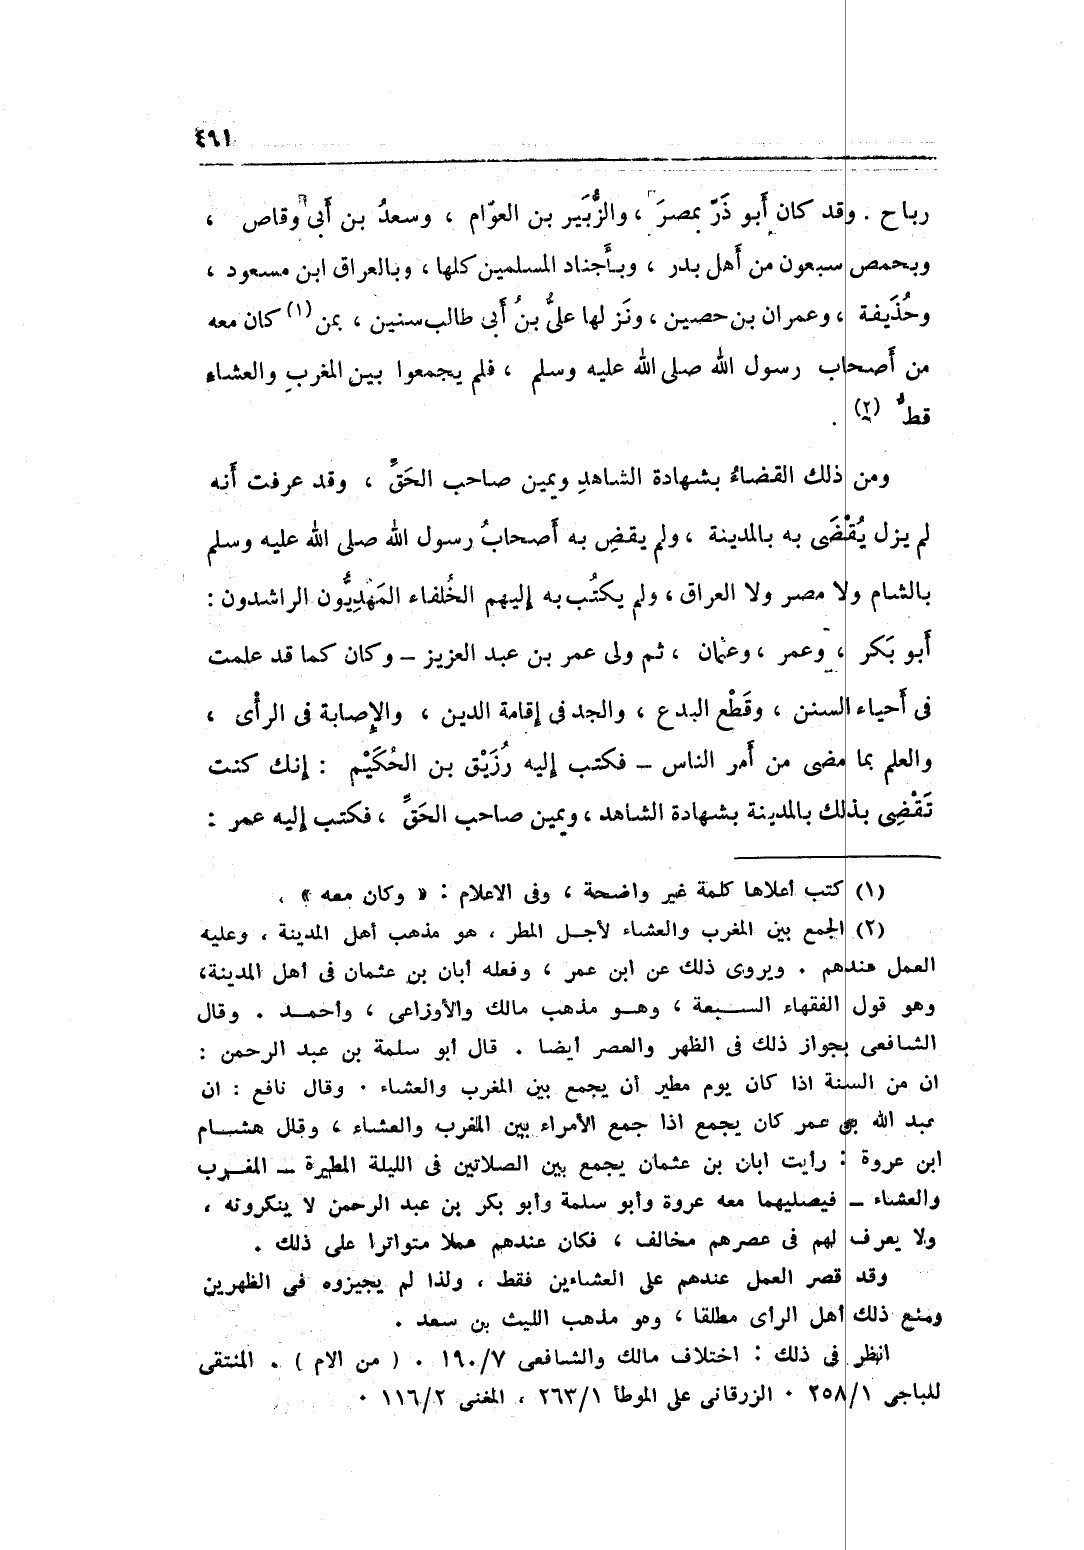 ٤٩١
رباح . وقد كان أَبو ذَرّ بمصرَ ، والزُّبَير بن العوّام ، وسعدُ بن أَبى وقاص ،
وبحمص سبعون من أَهل بدر ، وبأَجناد المسلمين كلها ، وبالعراق ابن مسعود ،
وحُذَيفة ، وعمران بن حصين ، ونَزلها علىُّ بنُ أَبى طالب سنين ، بمن (١) كان معه
من أَصحاب رسول الله صلى الله عليه وسلم ، فلم يجمعوا بين المغرب والعشاء
قطُّ (٢) .
ومن ذلك القضاءُ بشهادة الشاهدِ ويمين صاحب الحَقِّ ، وقد عرفت أَنه
لم يزل يُقْضَى به بالمدينة ، ولم يقضِ به أَصحابُ رسول الله صلى الله عليه وسلم
بالشام ولا مصر ولا العراق ، ولم يكتُب به إليهم الخُلفاء المَهْدِيُّون الراشدون :
أَبو بَكر ، وعمر ، وعثمان ، ثم ولى عمر بن عبد العزيز – وكان كما قد علمت
فى أَحياء السنن ، وقَطْع البدع ، والجد فى إقامة الدين ، والإصابة فى الرأْى ،
والعلم بما مضى من أَمر الناس – فكتب إليه رُزَيْق بن الحُكَيْم : إنك كنت
تَقْضِى بذلك بالمدينة بشهادة الشاهد ، ويمين صاحب الحَقِّ ، فكتب إليه عمر :
(١) كتب أعلاها كلمة غير واضحة ، وفى الاعلام : « وكان معه » .
(٢) الجمع بين المغرب والعشاء لأجل المطر ، هو مذهب أهل المدينة ، وعليه
العمل عندهم . ويروى ذلك عن ابن عمر ، وفعله أبان بن عثمان فى أهل المدينة ،
وهو قول الفقهاء السبعة ، وهو مذهب مالك والأوزاعى ، وأحمد . وقال
الشافعى بجواز ذلك فى الظهر والعصر أيضا . قال أبو سلمة بن عبد الرحمن :
ان من السنة اذا كان يوم مطير أن يجمع بين المغرب والعشاء . وقال نافع : ان
عبد الله بن عمر كان يجمع اذا جمع الأمراء بين المغرب والعشاء ، وقال هشام
ابن عروة : رأيت ابان بن عثمان يجمع بين الصلاتين فى الليلة المطيرة – المغرب
والعشاء – فيصليهما معه عروة وأبو سلمة وأبو بكر بن عبد الرحمن لا ينكرونه ،
ولا يعرف لهم فى عصرهم مخالف ، فكان عندهم عملا متواترا على ذلك .
وقد قصر العمل عندهم على العشاءين فقط ، ولذا لم يجيزوه فى الظهرين
ومنع ذلك أهل الرأى مطلقا ، وهو مذهب الليث بن سعد .
انظر فى ذلك : اختلاف مالك والشافعى ١٩٠/٧ . ( من الام ) . المنتقى
للباجى ٢٥٨/١ . الزرقانى على الموطأ ٢٦٣/١ ، المغنى ١١٦/٢ .